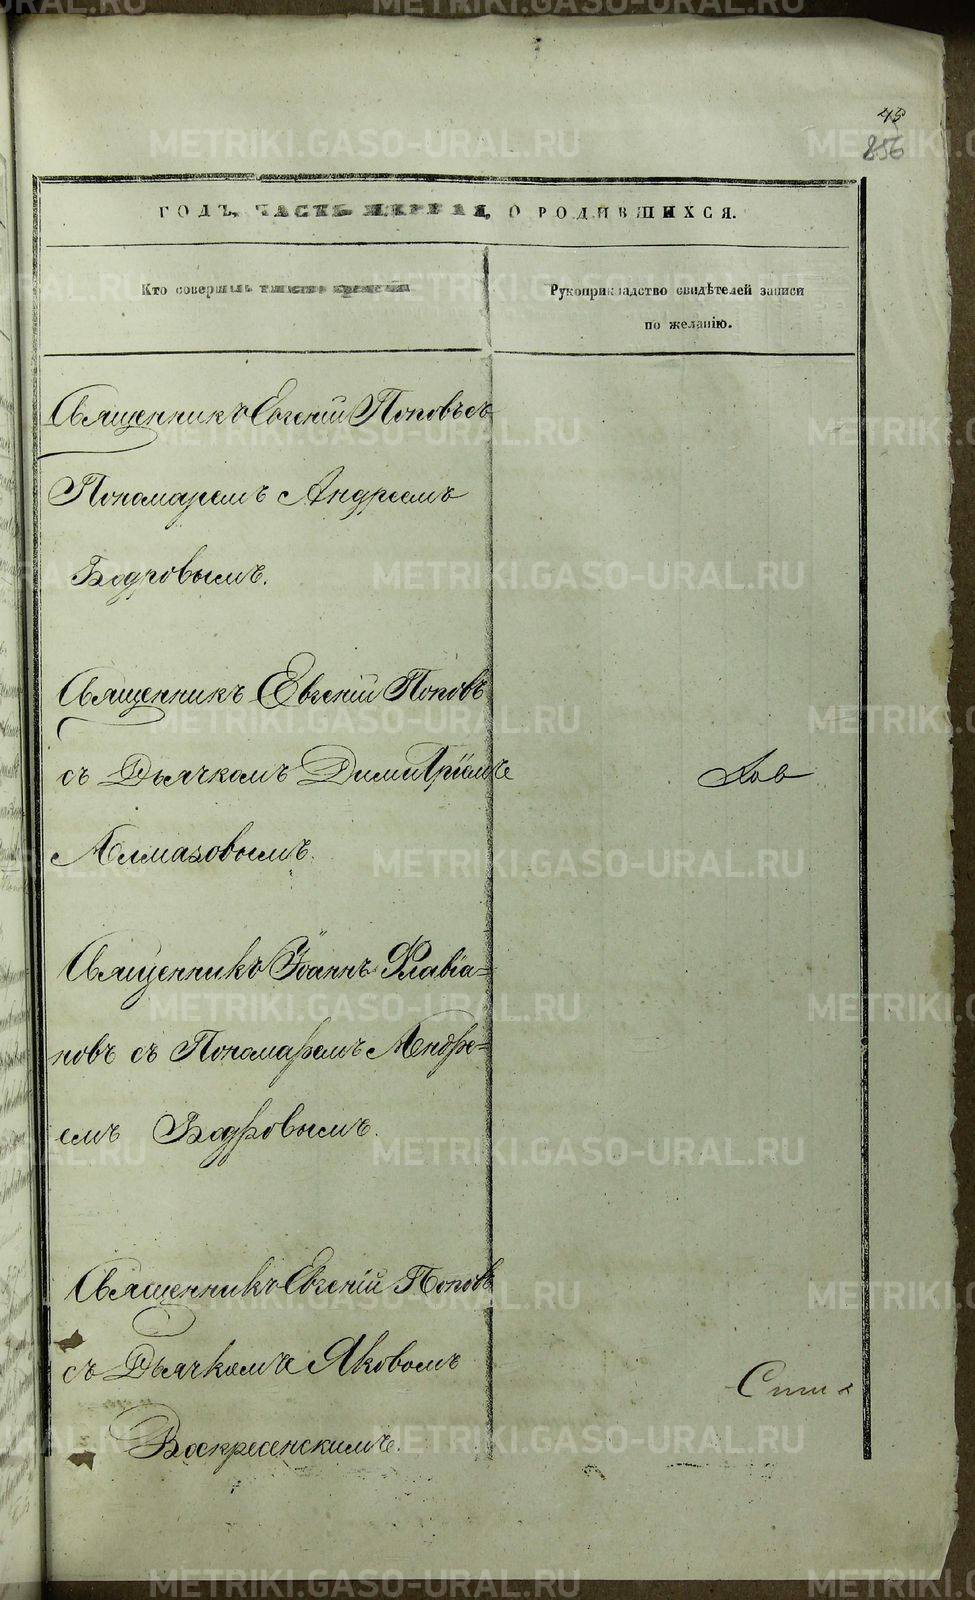 45
856
ГОДЪ, ЧАСТЬ ПЕРВАЯ, О РОДИВШИХСЯ.
Кто совершалъ таинство крещенія
Рукоприкладство свидѣтелей записи
по желанію.
Священникъ Евгеній Поповъ съ
Пономаремъ Андреемъ
Бодровымъ.
Священникъ Евгеній Поповъ
съ Дьячкомъ Димитріемъ
Алмазовымъ.
Священникъ Іоаннъ Флавіа=
новъ съ Пономаремъ Андре=
емъ Бодровымъ.
Священникъ Евгеній Поповъ
съ Дьячкомъ Яковомъ
Воскресенскимъ.
METRIKI.GASO-URAL.RU